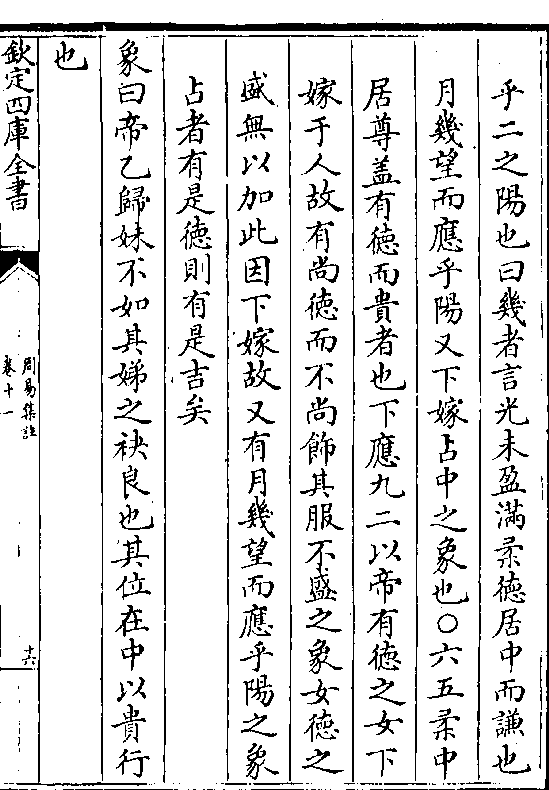 乎二之陽也曰幾者言光未盈滿柔德居中而謙也
月幾望而應乎陽又下嫁占中之象也○六五柔中
居尊蓋有德而貴者也下應九二以帝有德之女下
嫁于人故有尚德而不尚飾其服不盛之象女德之
盛無以加此因下嫁故又有月幾望而應乎陽之象
占者有是德則有是吉矣
象曰帝乙歸妹不如其娣之袂良也其位在中以貴行
也
欽定四庫全書
周易集註
卷十一
十六